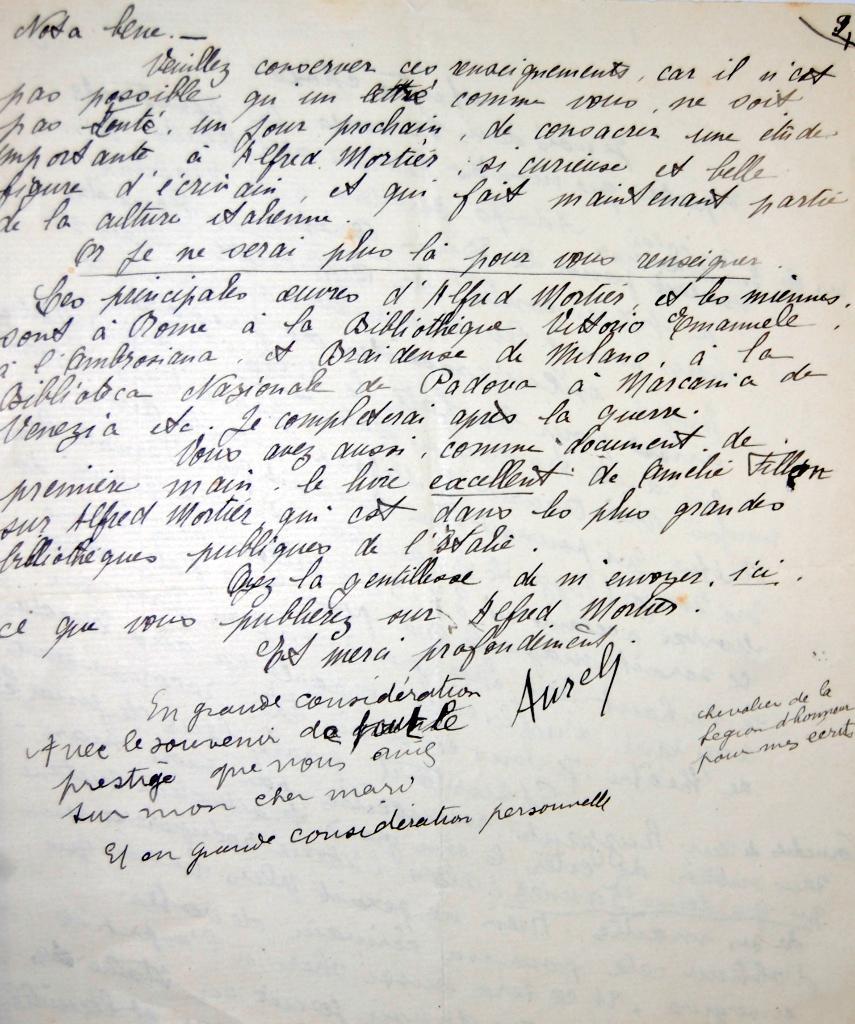 9
Nota bene. —
Veuillez conserver ces renseignements, car il n'est
pas possible qu'un lettré comme vous, ne soit
pas tenté, un jour prochain, de consacrer une étude
importante à Alfred Mortier, si curieuse et belle
figure d'écrivain, et qui fait maintenant partie
de la culture italienne.
Or je ne serai plus là pour vous renseigner.
Les principales œuvres d'Alfred Mortier, et les miennes,
sont à Rome à la Bibliothèque Vittorio Emanuele,
à l'Ambrosiana, et Braidense de Milano, à la
Biblioteca Nazionale de Padova à Marcania de
Venezia etc. Je completerai après la guerre.
Vous avez aussi, comme document de
première main, le livre excellent de Amélie Fillon
sur Alfred Mortier, qui est dans les plus grandes
bibliothèques publiques de l'Italie.
Ayez la gentillesse de m'envoyer, ici,
ce que vous publierez sur Alfred Mortier.
Et merci profondément.
En grande considération
Aurel
Avec le souvenir de
prestige que vous
sur mon cher mari
Et en grande considération personnelle
chevalier de la
Légion d'honneur
pour mes écrits